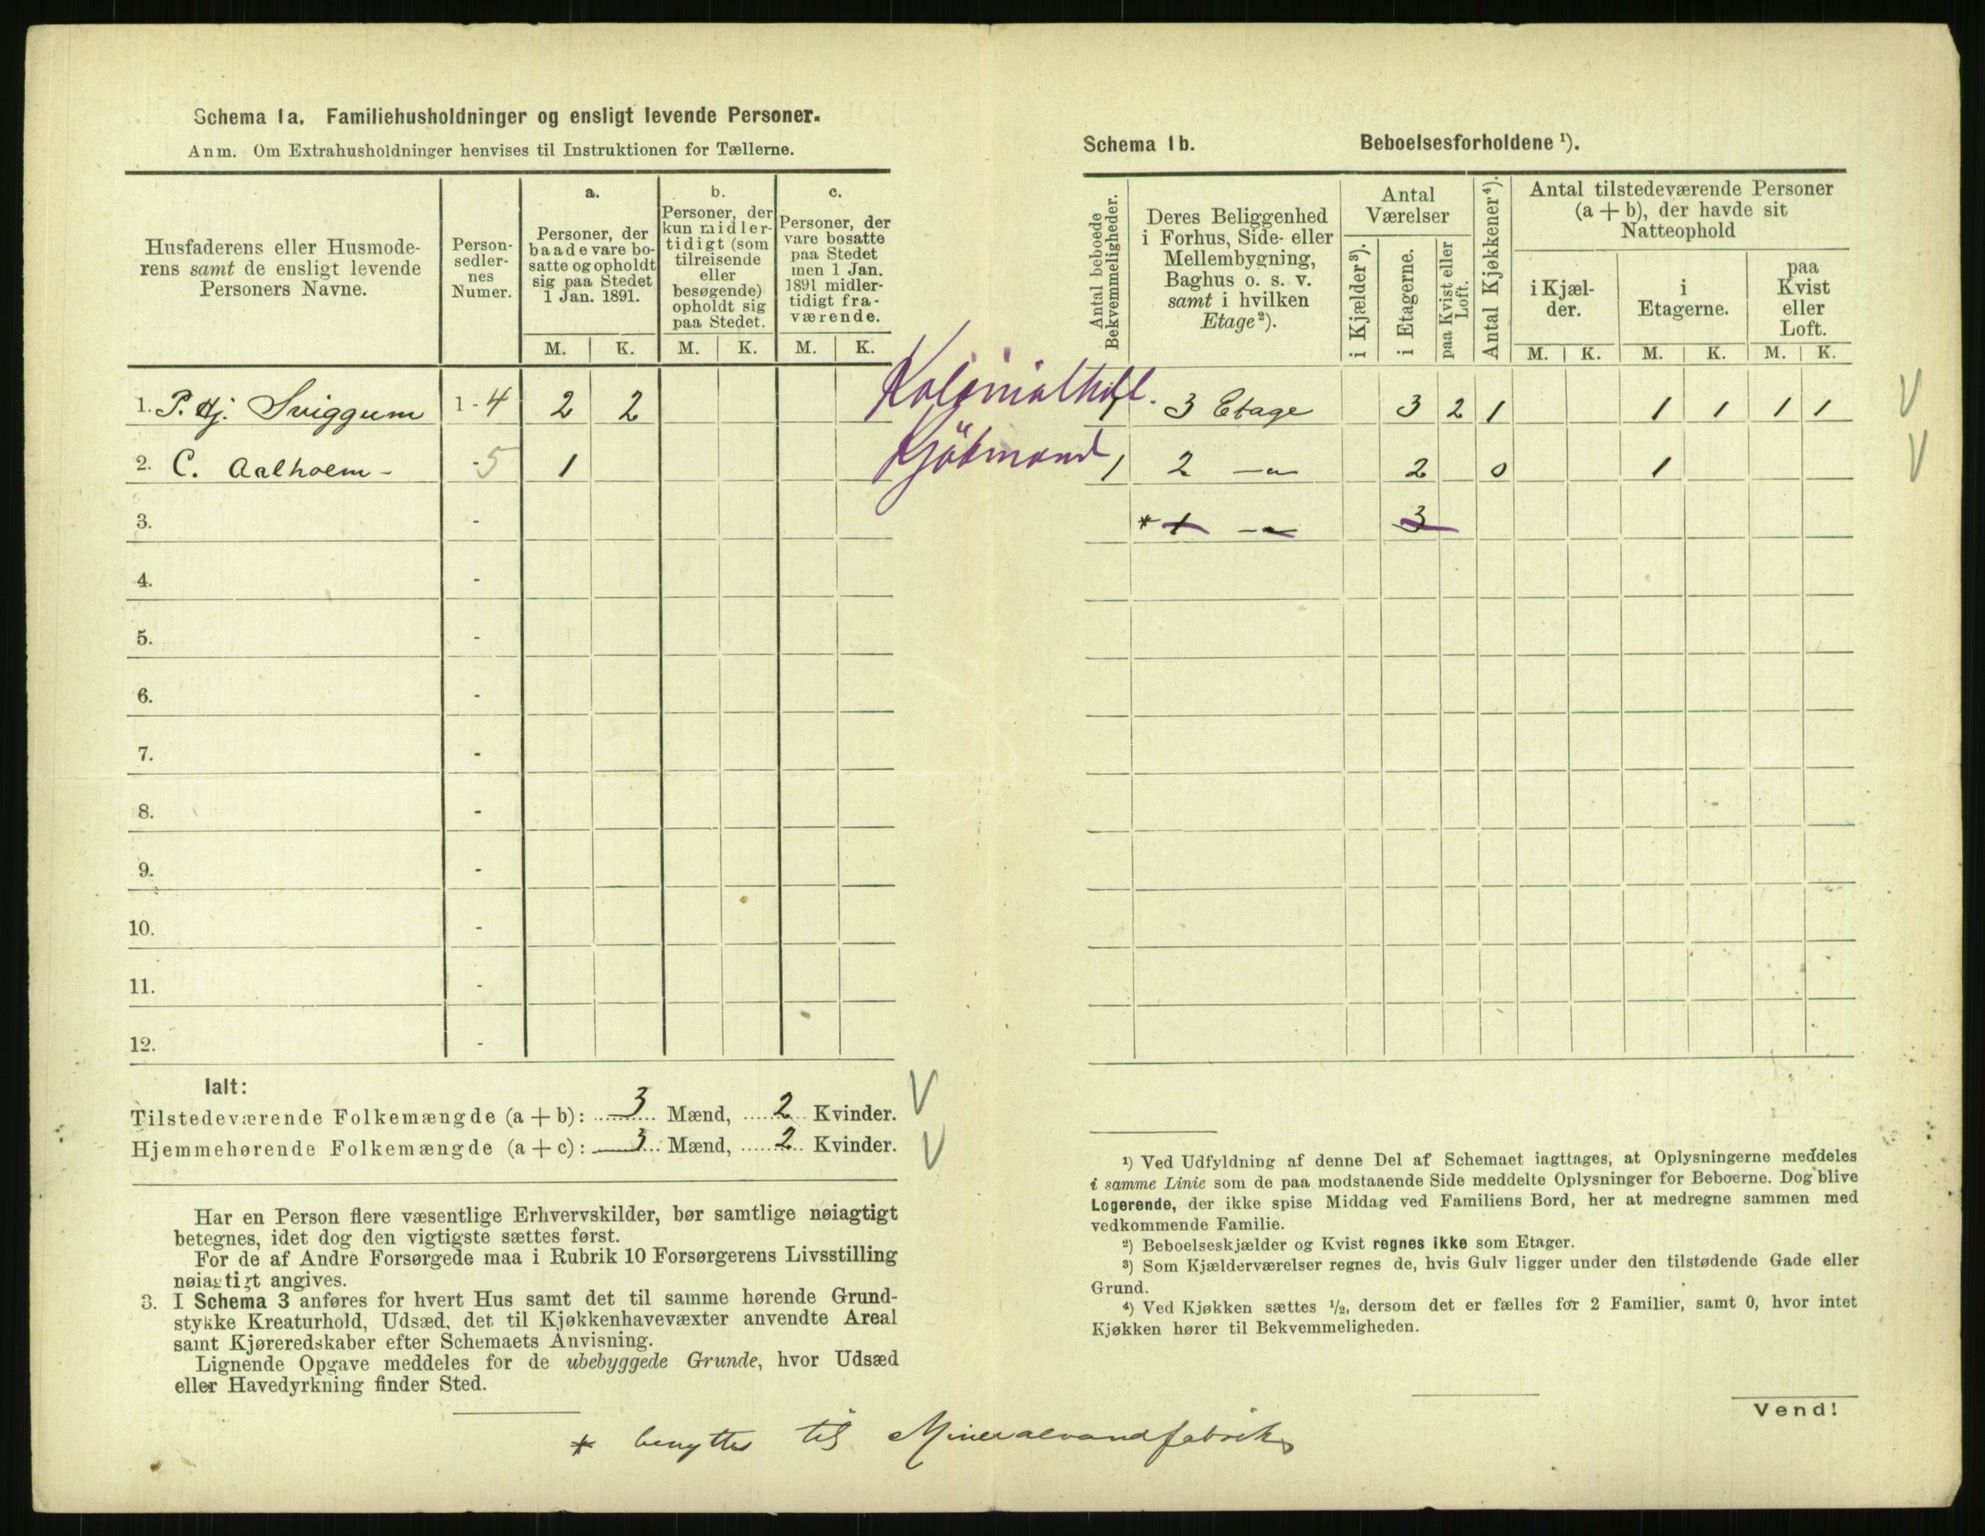 Schema 1a. Familiehusholdninger og ensligt levende Personer.
Anm. Om Extrahusholdninger henvises til Instruktionen for Tællerne.
Husfaderens eller Husmode-
rens samt de ensligt levende
Personers Navne.
Person-
sedler-
nes
Numer.
a.
Personer, der
baade vare bo-
satte og opholdt
sig paa Stedet
1 Jan. 1891.
b.
Personer, der
kun midler-
tidigt (som
tilreisende
eller
besøgende)
opholdt sig
paa Stedet.
c.
Personer, der
vare bosatte
paa Stedet
men 1 Jan.
1891 midler-
tidigt fra-
værende.
M. K. M. K. M. K.
1. P. Hj. Sviggum 1 - 4 2 2
2. C. Aalholm - - 5 1
3. -
4. -
5. -
6. -
7. -
8. -
9. -
10. -
11. -
12. -
Ialt:
Tilstedeværende Folkemængde (a + b): 3 Mænd, 2 Kvinder.
Hjemmehørende Folkemængde (a + c): 3 Mænd, 2 Kvinder.
Har en Person flere væsentlige Erhvervskilder, bør samtlige nøiagtigt
betegnes, idet dog den vigtigste sættes først.
For de af Andre Forsørgede maa i Rubrik 10 Forsørgerens Livsstilling
nøiagtigt angives.
3. I Schema 3 anføres for hvert Hus samt det til samme hørende Grund-
stykke Kreaturhold, Udsæd, det til Kjøkkenhavevæxter anvendte Areal
samt Kjøreredskaber efter Schemaets Anvisning.
Lignende Opgave meddeles for de ubebyggede Grunde, hvor Udsæd
eller Havedyrkning finder Sted.
* benyttes til Mineralvandfabrik
Schema 1b. Beboelsesforholdene ¹).
Antal beboede
Bekvemmeligheder.
Deres Beliggenhed
i Forhus, Side- eller
Mellembygning,
Baghus o. s. v.
samt i hvilken
Etage²).
Antal
Værelser
i Kjælder³).
i Etagerne.
paa Kvist eller
Loft.
Antal Kjøkkener⁴).
Antal tilstedeværende Personer
(a + b), der havde sit
Natteophold
i Kjæl-
der.
i
Etagerne.
paa
Kvist
eller
Loft.
M. K. M. K. M. K.
Kolonialhdl. 1 3 Etage 3 2 1 1 1 1 1
Kjøbmand 1 2 — " — 2 0 1
* 1 — " — 3
¹) Ved Udfyldning af denne Del af Schemaet iagttages, at Oplysningerne meddeles
i samme Linie som de paa modstaaende Side meddelte Oplysninger for Beboerne. Dog blive
Logerende, der ikke spise Middag ved Familiens Bord, her at medregne sammen med
vedkommende Familie.
²) Beboelseskjælder og Kvist regnes ikke som Etager.
³) Som Kjælderværelser regnes de, hvis Gulv ligger under den tilstødende Gade eller
Grund.
⁴) Ved Kjøkken sættes ½, dersom det er fælles for 2 Familier, samt 0, hvor intet
Kjøkken hører til Bekvemmeligheden.
Vend!